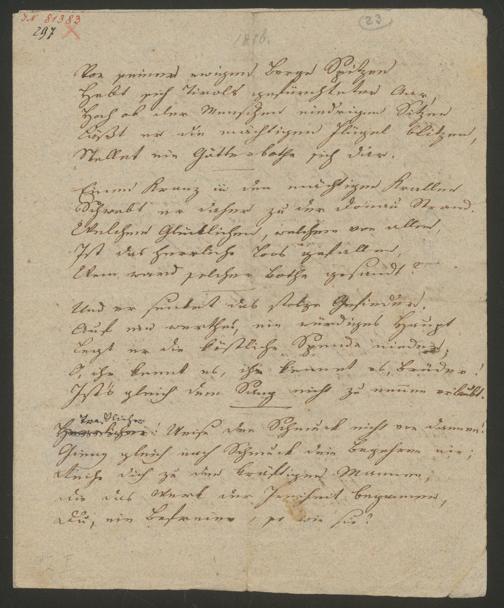 I.N 81383
297
23
1816.
Von seiner ewigen Berge Spitzen
Hebt sich Tirols gefürchteter Aar,
Hoch ob der Menschen niedrigen Sitzen
Läßt er die mächtigen Flügel blitzen,
Stellet ein Götterbothe sich dar.
Einen Kranz in den mächtigen Krallen
Schwebt er daher zu der Donau Strand.
Welchem Glücklichen, welchem von allen,
Ist das herrliche Loos gefallen,
Wem ward solcher Bothe gesandt?
Und er senket das stolze Gefieder,
Auf ein werthes, ein würdiges Haupt
Legt er die köstliche Spende nieder;
O, ihr kennt es, ihr kennt es, Brüder!
Ist's gleich dem Sang nicht zu nennen erlaubt.
Treflicher
! Weise den Schmuck nicht von dannen!
Gieng gleich nach Schmuck dein Begehren nie;
Reihe dich zu den kräftigen Mannen,
Die das Werk der Freiheit begannen,
Du, ein Befreier, so wie sie!